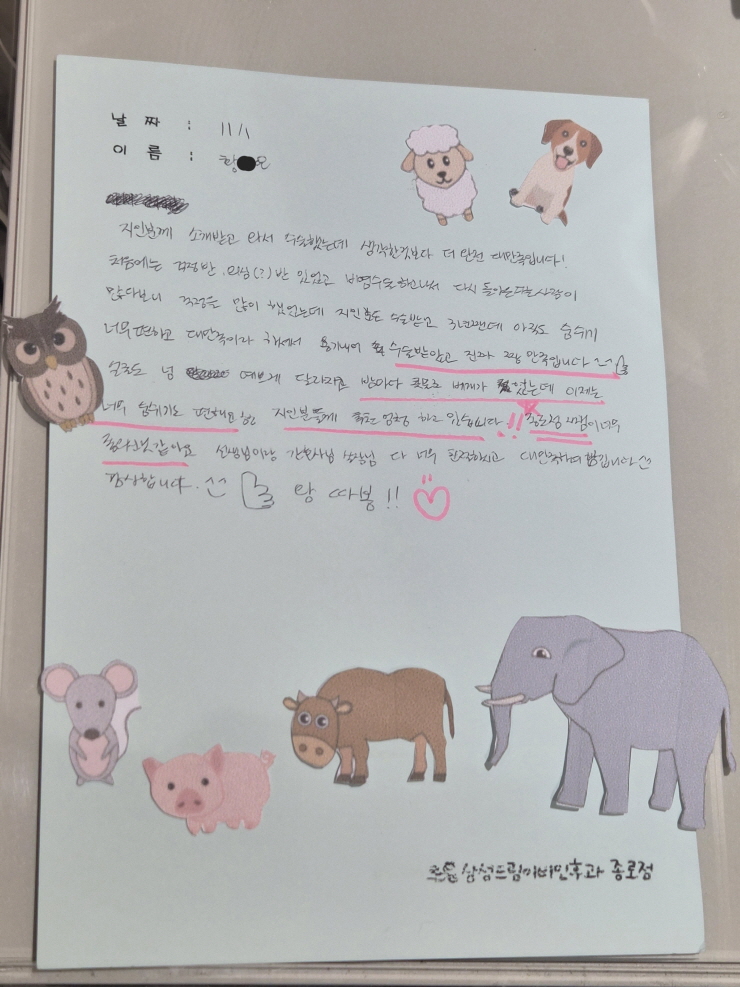 날 짜 : 11/1
이 름 : 황 은
지인분께 소개받고 와서 수술했는데 생각한것보다 더 완전 대만족입니다!
처음에는 걱정반 의심(?)반 있었고 비염수술하고나서 다시 돌아온다는 사람이
많다보니 걱정은 많이 했었는데 지인분도 수술받고 3년짼데 아직도 숨쉬기
너무 편하고 대만족이라 해서 용기내어 수술받았고 진짜 짱 만족입니다 ~~
실로도 넘 예쁘게 달라지고 밤마다 배개가 었는데 이제는
너무 숨쉬기도 편해요 지인분들께 엄청 하고 있습니다!! 종로점 지점이 너무
좋아 것같아요 선생님이랑 간호사님 실장님 다 너무 친절하시고 대만족하며 갑니다 ^^
감상합니다. ^^ 랑 따봉!!
삼성드림이비인후과 종로점